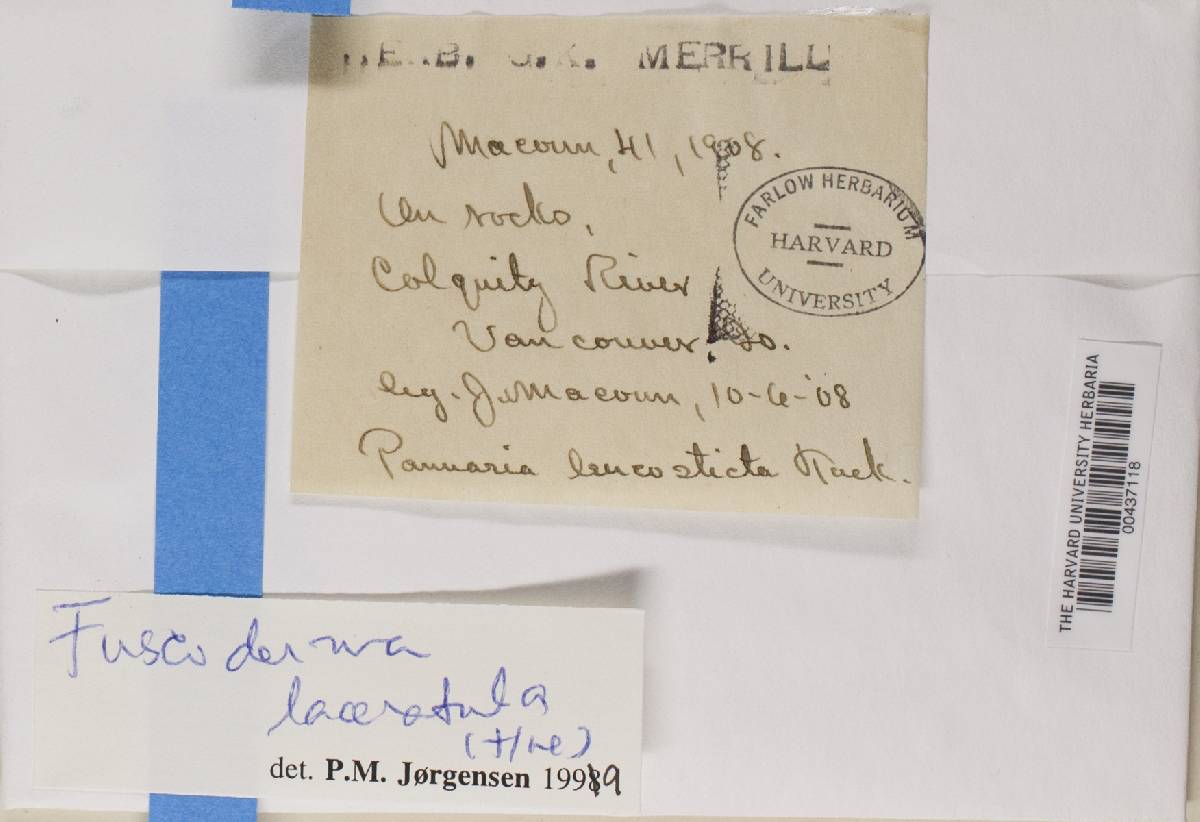 HERB. G.K. MERRILL
Macoun, 41, 1908.
On rocks,
Colquity River
Vancouver. Is.
leg. J. Macoun, 10-6-'08
Pannaria leucosticta Tuck.
FARLOW HERBARIUM
HARVARD
UNIVERSITY
THE HARVARD UNIVERSITY HERBARIA
00437118
Fuscoderma
laceratula
det. P.M. Jørgensen 1999